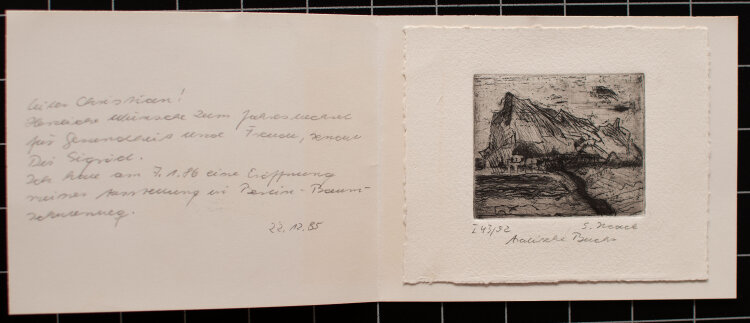 Lieber Christian!
Herzliche Wünsche zum Jahreswechsel
für Gesundheit und Freude,
Dir Sigrid.
Ich habe am 7.1.86 eine Eröffnung
meiner Ausstellung in Berlin-Baum-
schulenweg.
22.12.85
I 43/92 S. Noack
Bucht